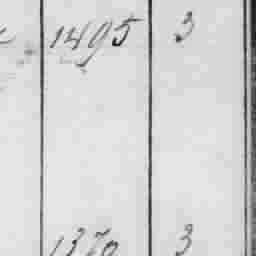 1495 3
1370 3